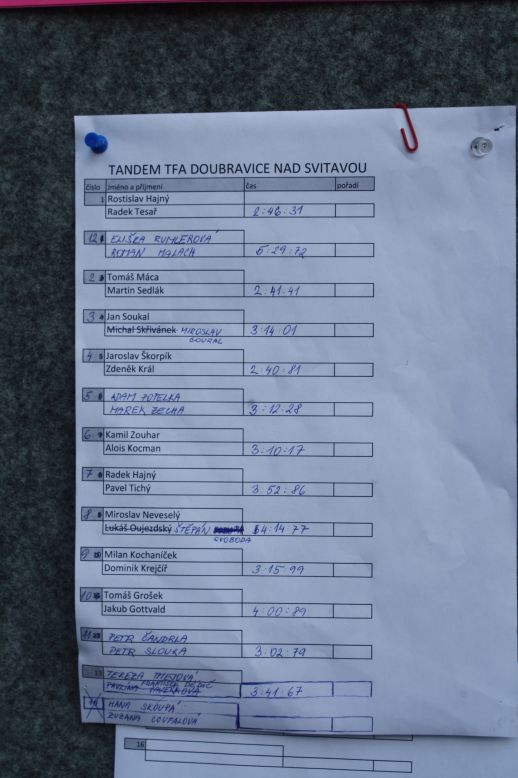 TANDEM TFA DOUBRAVICE NAD SVITAVOU
číslo jméno a příjmení čas pořadí
1 Rostislav Hajný
Radek Tesař 2:46:31
12 ELIŠKA RUMLEROVÁ
ROMAN MALACH 5:29:72
2 Tomáš Máca
Martin Sedlák 2:41:41
3 Jan Soukal
Michal Skřivánek MIROSLAV 3:14:01
COURAL
4 Jaroslav Škorpík
Zdeněk Král 2:40:81
5 ADAM
MAREK ZECHA 3:12:28
6 Kamil Zouhar
Alois Kocman 3:10:17
7 Radek Hajný
Pavel Tichý 3:52:86
8 Miroslav Neveselý
Lukáš Oujezdský ŠTĚPÁN 4:14:77
SVOBODA
9 Milan Kochaníček
Dominik Krejčíř 3:15:99
10 Tomáš Grošek
Jakub Gottvald 4:00:89
11 PETR ČANDRLA
PETR SLOUKA 3:02:79
13 TEREZA
FRANTIŠEK
PAVLÍNA 3:41:67
HANA SKOUPÁ
ZUZANA COUFALOVÁ
16